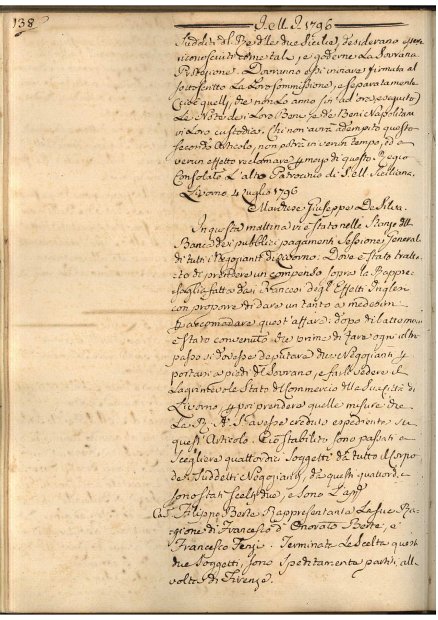 138
J. M. J. 1796
Sudditi del Re delle due Sicilie, desiderano esser
riconosciuti come tali, e goderne la Sovrana
Protezione. Dovranno essi inviare firmata al
sottoscritto la loro sommissione, e separatamente
tutti quelli, che non lo anno fin ad ora eseguito
le Note dei loro Beni, e de Beni Napolitani
in loro custodia. Chi non avrà adempito questo
secondo Articolo, non potrà in verun tempo, ed a
verun effetto reclamare p mezzo di questo Regio
Consolato l'alto Patrocinio di S. M. Siciliana.
Livorno. 4 Luglio 1796
Marchese Giuseppe De Silva.
In questa mattina vi è stato nelle Stanze del
Banco dei pubblici pagamenti Sessione Generale
di tutti i Negozianti di Livorno: Dove è stato tratta-
to di prendere un compenso sopra la Rappre-
saglia fatta dai Francesi degl'Effetti Inglesi
con proporre di dare un tanto a medesimi
p accomodare quest'affare: dopo di
è stato convenuto che prima di fare ogn'altro
passo si dovesse deputare due Negozianti p
portarsi a piedi del Sovrano, e farli vedere il
lagrimevole Stato del Commercio della sua Città di
Livorno, e poi prendere quelle misure che
Le R. A. S. avesse creduto espediente su
quest'Articolo. Ciò stabilito sono passati a
scegliere quattordici Soggetti da tutto il Corpo
de Suddetti Negozianti, da questi quattordici
sono stati scelti due, e sono l'app.
Filippo Berte Rappresentante le sue Ra-
gione di Francesco d'Onorato Berte, e
Francesco Fenzi. Terminata la Scelta questi
due Soggetti, sono speditamente partiti all
volta di Firenze.